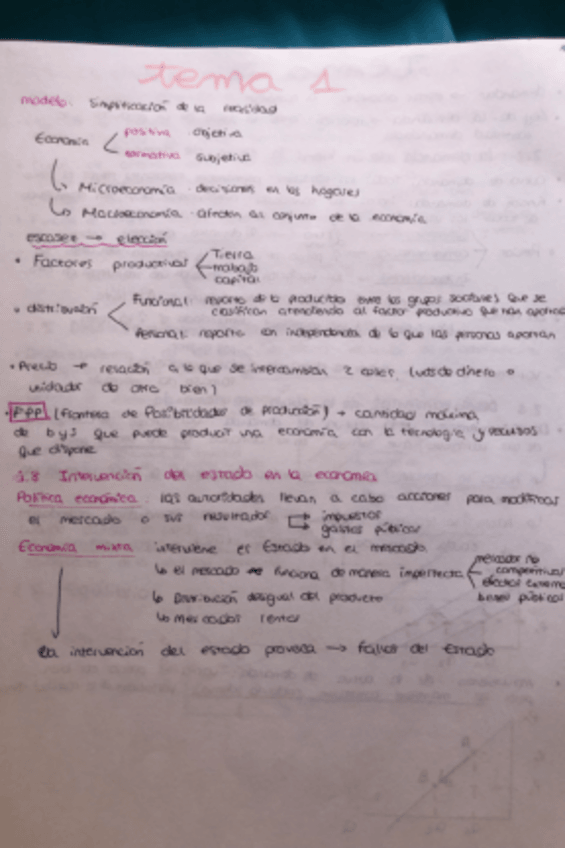 tema 1
modelo: Simplificación de la realidad
Economía < positiva objetiva
normativa subjetiva
↳ Microeconomía · decisiones en los hogares
↳ Macroeconomía · afectan al conjunto de la economía
escasez → elección
• Factores productivos < Tierra
trabajo
capital
• distribución < Funcional: reparto de lo producido entre los grupos sociales que se
clasifican atendiendo al factor productivo que han aportado
Personal: reparto con independencia de lo que las personas aportan
• Precio → relación a la que se intercambian 2 cosas (uds de dinero o
unidades de otro bien)
• FPP (Frontera de Posibilidades de producción) → cantidad máxima
de b y s que puede producir una economía con la tecnología y recursos
que dispone
3.8 Intervención del estado en la economía
Política económica: las autoridades llevan a cabo acciones para modificar
el mercado o sus resultados → impuestos
gastos públicos
Economía mixta interviene el Estado en el mercado
↳ el mercado funciona de manera imperfecta < mercados no
competitivos
efectos externos
bienes públicos
↳ Distribución desigual del producto
↳ mercados lentos
La intervención del estado provoca → fallos del Estado